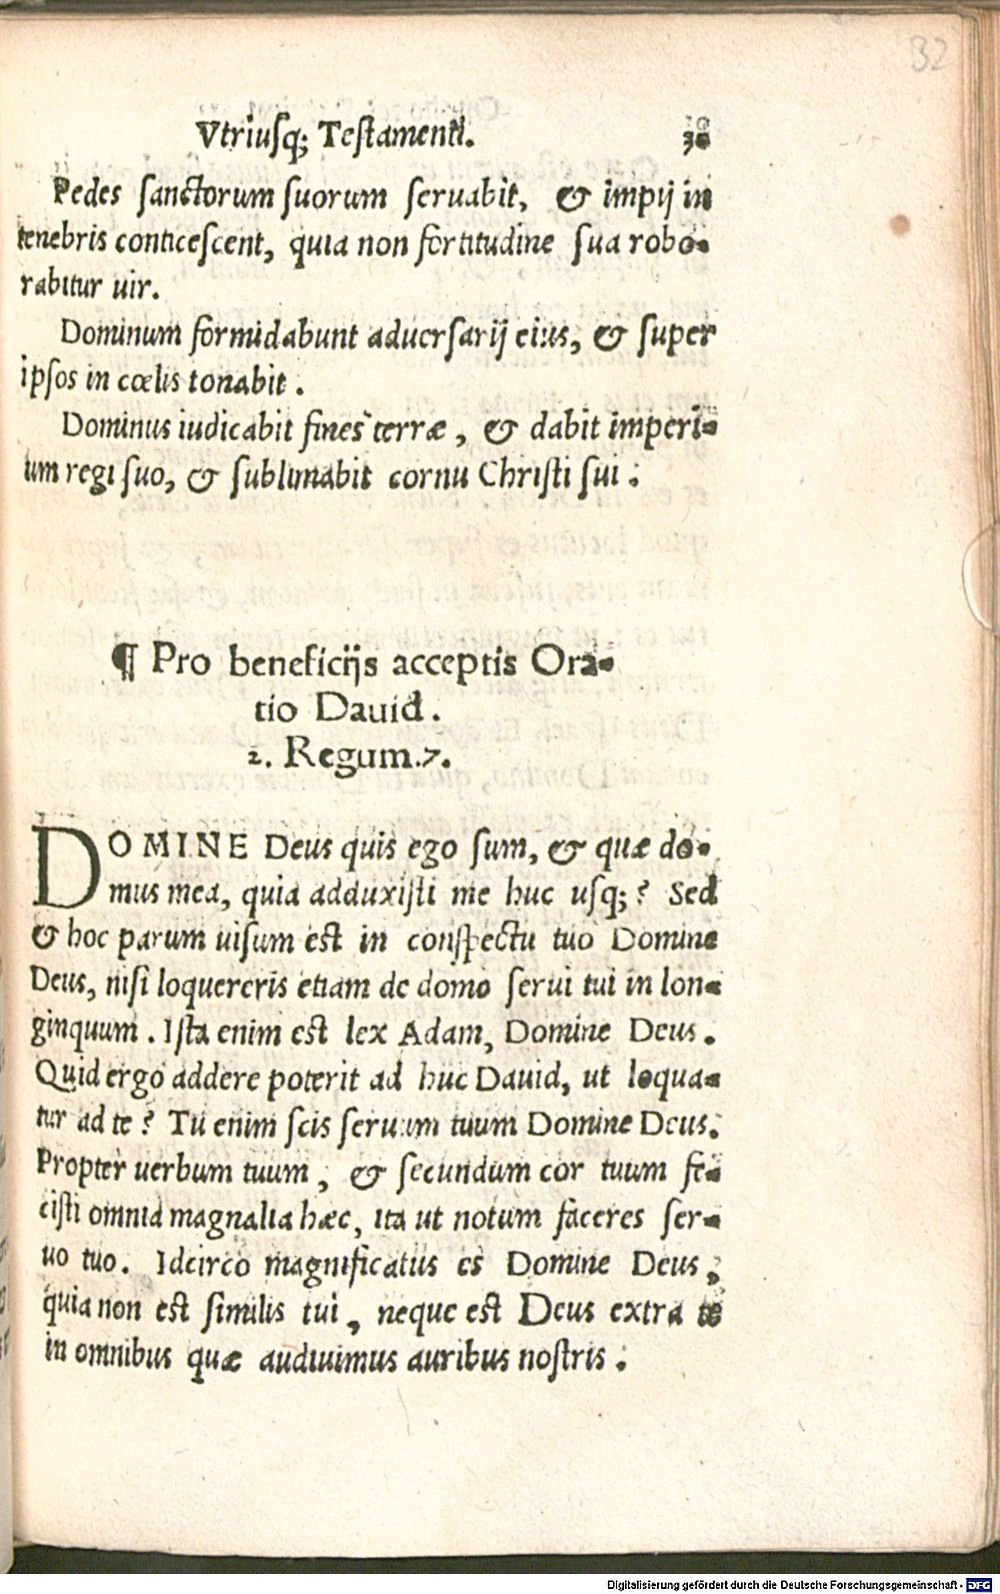 32
Vtriusq; Testamenti.
Pedes sanctorum suorum seruabit, & impij in
tenebris conticescent, quia non fortitudine sua robo-
rabitur uir.
Dominum formidabunt aduersarij eius, & super
ipsos in cœlis tonabit.
Dominus iudicabit fines terræ, & dabit imperi-
um regi suo, & sublimabit cornu Christi sui.
¶ Pro beneficijs acceptis Ora-
tio Dauid.
2. Regum.7.
DOMINE Deus quis ego sum, & quæ do-
mus mea, quia adduxisti me huc usq;? Sed
& hoc parum uisum est in conspectu tuo Domine
Deus, nisi loquereris etiam de domo serui tui in lon-
ginquum. Ista enim est lex Adam, Domine Deus.
Quid ergo addere poterit ad huc Dauid, ut loqua-
tur ad te? Tu enim scis seruum tuum Domine Deus.
Propter uerbum tuum, & secundum cor tuum fe-
cisti omnia magnalia hæc, ita ut notum faceres ser-
uo tuo. Idcirco magnificatus es Domine Deus,
quia non est similis tui, neque est Deus extra te
in omnibus quæ audiuimus auribus nostris.
Digitalisierung gefördert durch die Deutsche Forschungsgemeinschaft - DFG